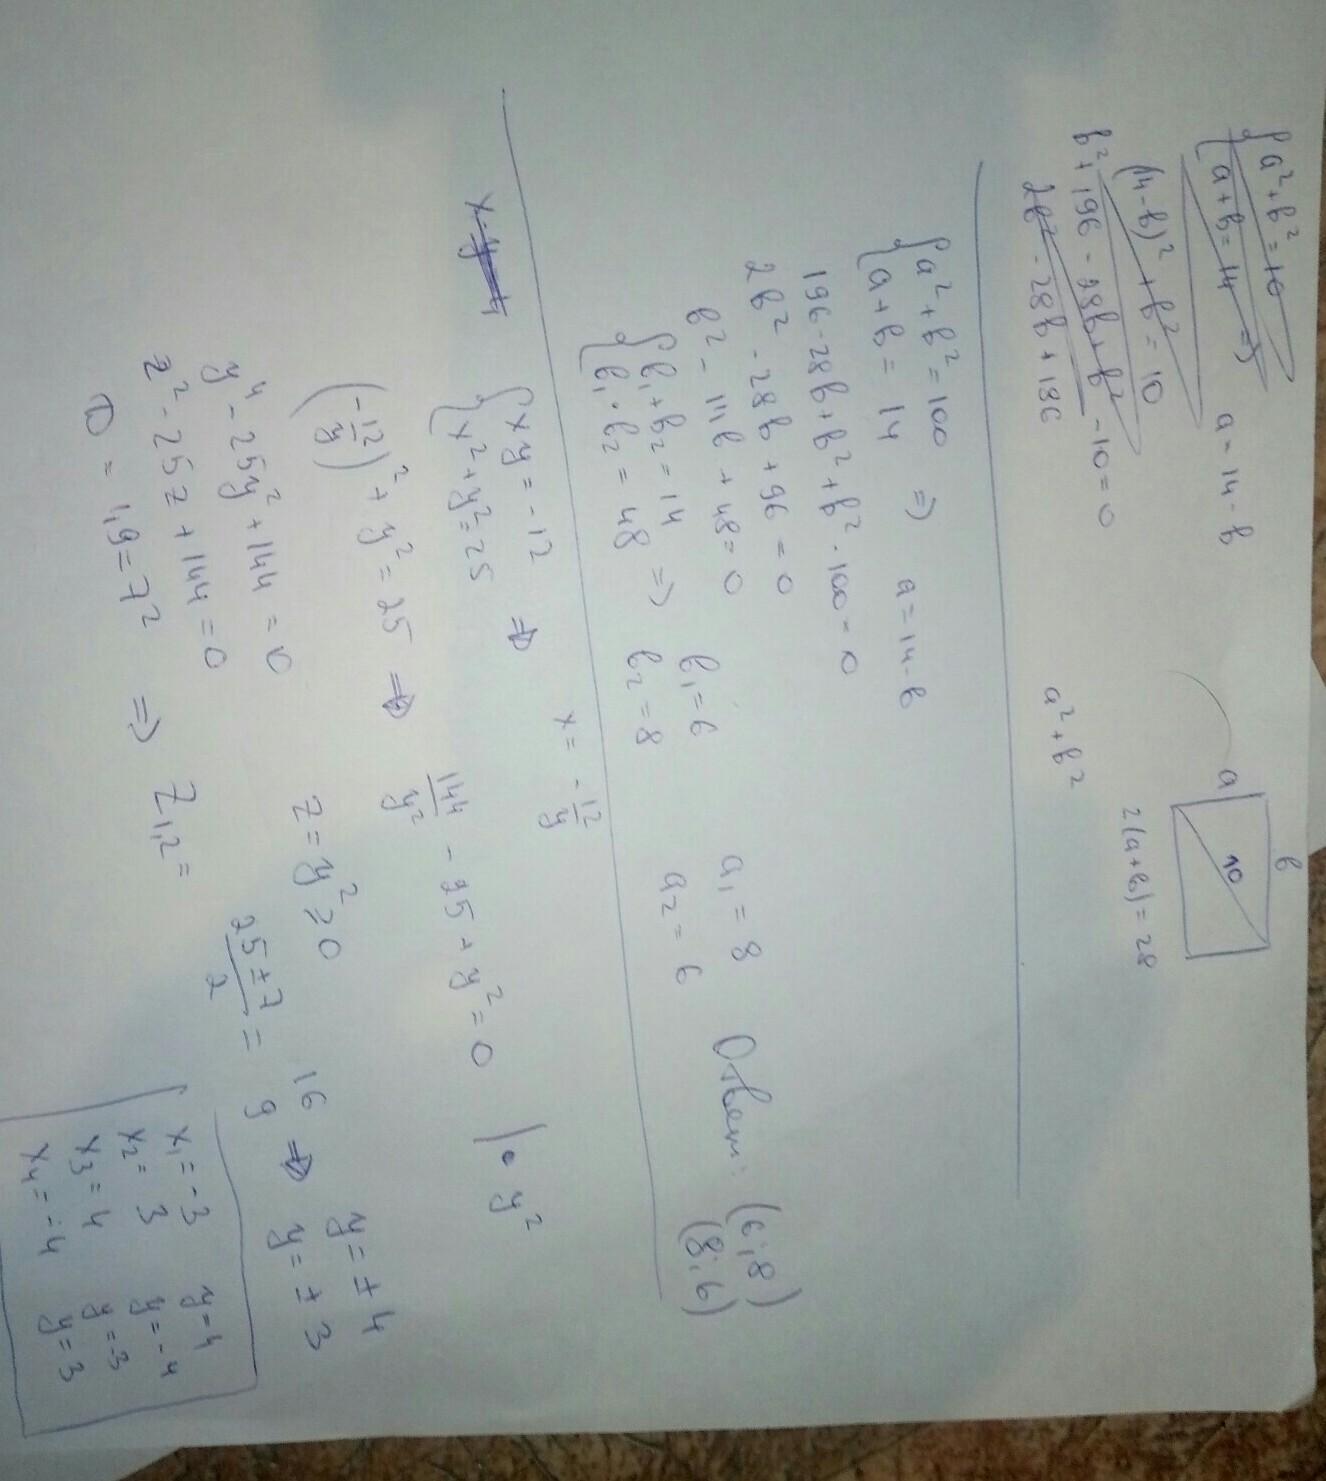 {a² + b² = 10
{a + b = 14 ⇒ a = 14 - b
(14 - b)² + b² = 10
b² + 196 - 28b + b² - 10 = 0
2b² - 28b + 186
a b
10
2(a+b) = 28
a² + b²
{a² + b² = 100
{a + b = 14 ⇒ a = 14 - b
196 - 28b + b² + b² - 100 = 0
2b² - 28b + 96 = 0
b² - 14b + 48 = 0
{b₁ + b₂ = 14
{b₁ · b₂ = 48 ⇒ b₁ = 6 a₁ = 8
b₂ = 8 a₂ = 6
Ответ: (6;8)
(8;6)
x - y = 4
{xy = -12
{x² + y² = 25 ⇒ x = -12/y
(-12/y)² + y² = 25 ⇒ 144/y² - 25 + y² = 0 | · y²
y⁴ - 25y² + 144 = 0 z = y² ≥ 0
z² - 25z + 144 = 0
D = 49 = 7² ⇒ z₁,₂ = (25 ± 7)/2 = 16 ⇒ y = ± 4
9 y = ± 3
x₁ = -3 y = 4
x₂ = 3 y = -4
x₃ = 4 y = -3
x₄ = -4 y = 3